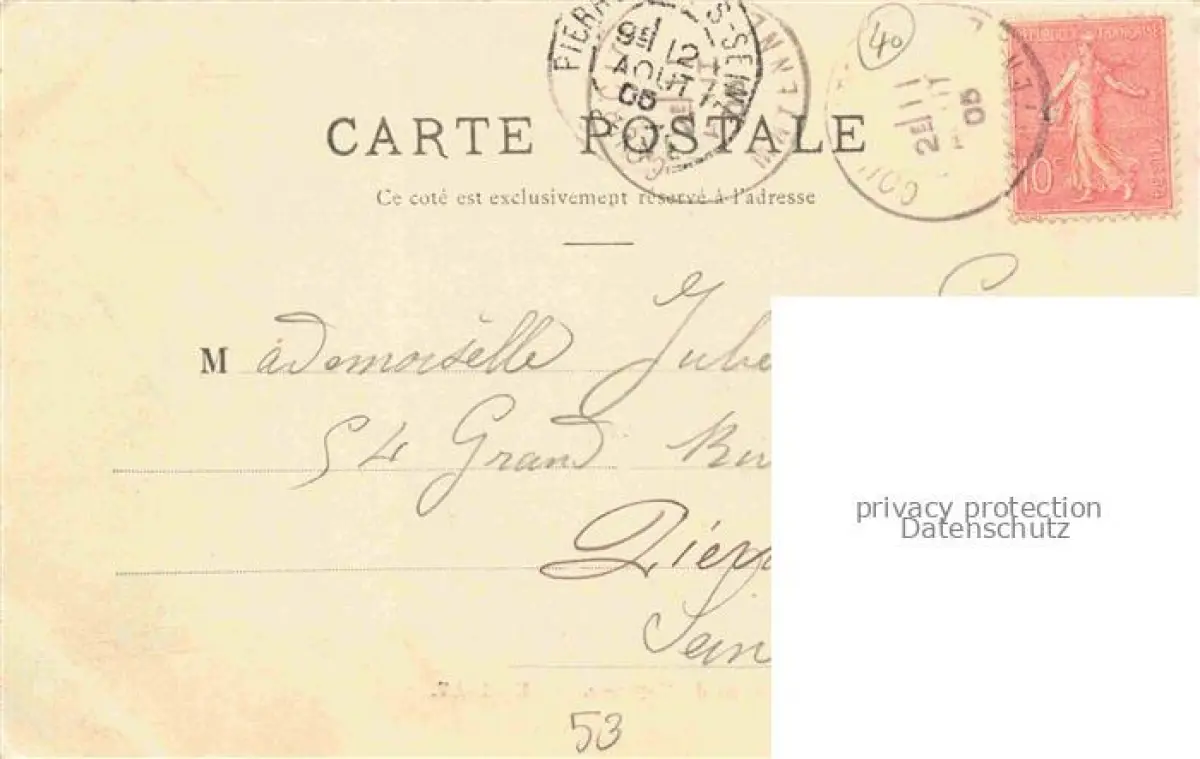 PIERR S-SEINE
9E 12
AOUT
05
MAYENNE
40
2E 11
05
REPUBLIQUE FRANÇAISE
10c
CARTE POSTALE
Ce coté est exclusivement réservé à l'adresse
Mademoiselle Jube
54 Grand Ru
Pierr
Sein
privacy protection
Datenschutz
53